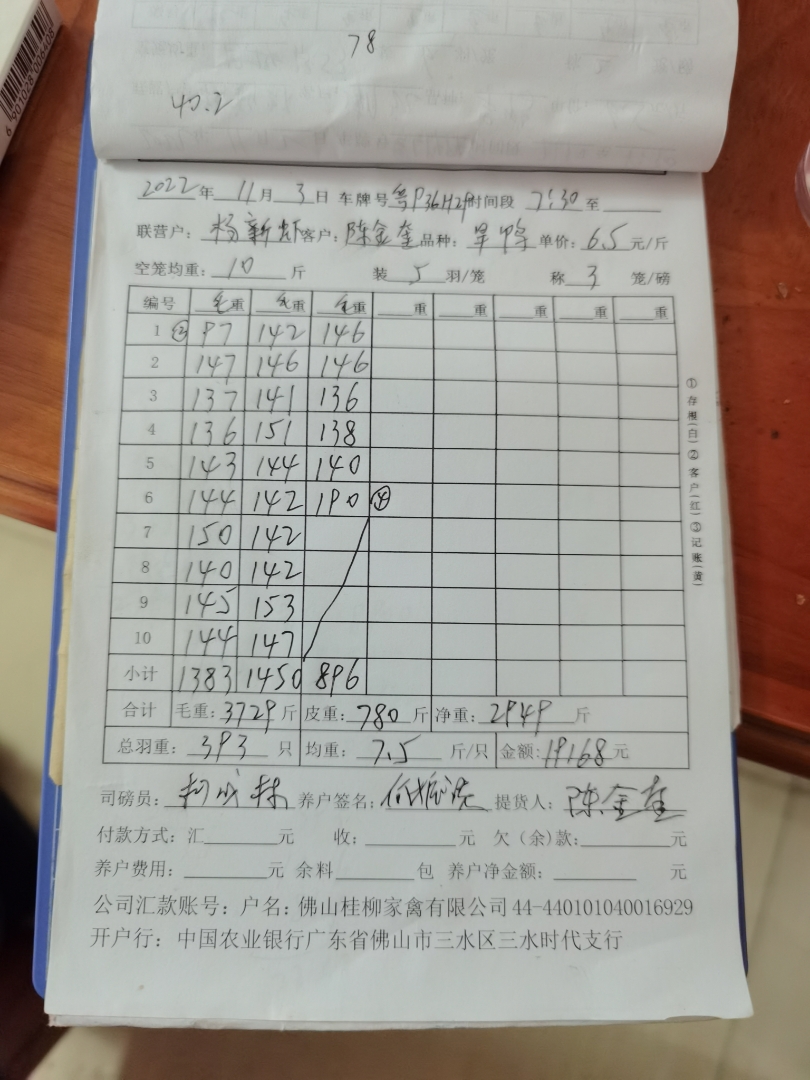 6901028006406
78
40.2
2022年 11月 3日 车牌号粤P36H29时间段 7:30至
联营户: 杨新虾 客户: 陈金奎 品种: 旱鸭 单价: 6.5元/斤
空笼均重: 10 斤 装 5 羽/笼 称 3 笼/磅
编号 毛重 毛重 毛重 重 重 重 重 重
1 ② 97 142 146
2 147 146 146
3 137 141 136
4 136 151 138
5 143 144 140
6 144 142 190 ④
7 150 142
8 140 142
9 145 153
10 144 147
小计 1383 1450 896
合计 毛重: 3729斤 皮重: 780斤 净重: 2949斤
总羽重: 393只 均重: 7.5斤/只 金额: 19168元
司磅员: 养户签名: 提货人: 陈金奎
付款方式: 汇 元 收: 元 欠(余)款: 元
养户费用: 元 余料 包 养户净金额: 元
公司汇款账号: 户名: 佛山桂柳家禽有限公司 44-440101040016929
开户行: 中国农业银行广东省佛山市三水区三水时代支行
①存根(白)②客户(红)③记账(黄)